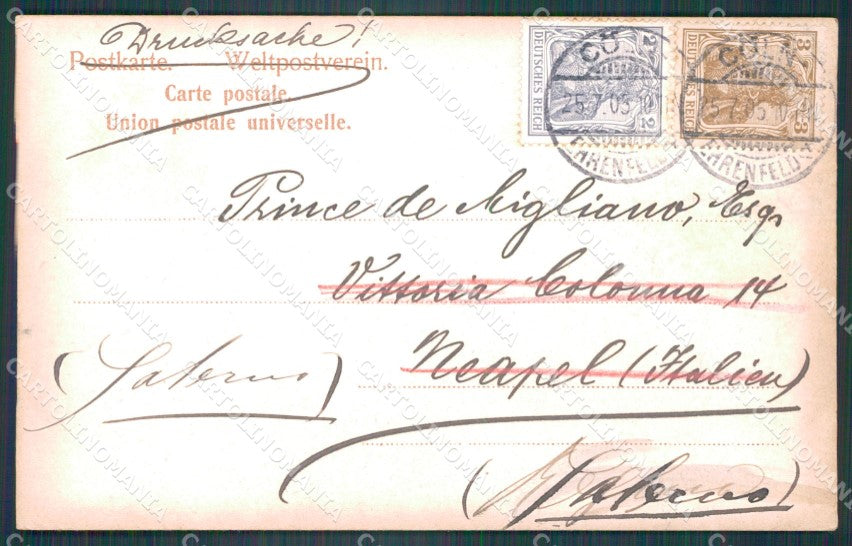 Drucksache!
Postkarte. Weltpostverein.
Carte postale.
Union postale universelle.
2 DEUTSCHES REICH 2
3 DEUTSCHES REICH 3
CÖLN
25.7.03 10
EHRENFELD
CÖLN
25.7.03 10
EHRENFELD
Prince de Migliano, Esqr
Vittoria Colonna 14
Neapel (Italien)
(Salerno)
(Salerno)
CARTOLINOMANIA